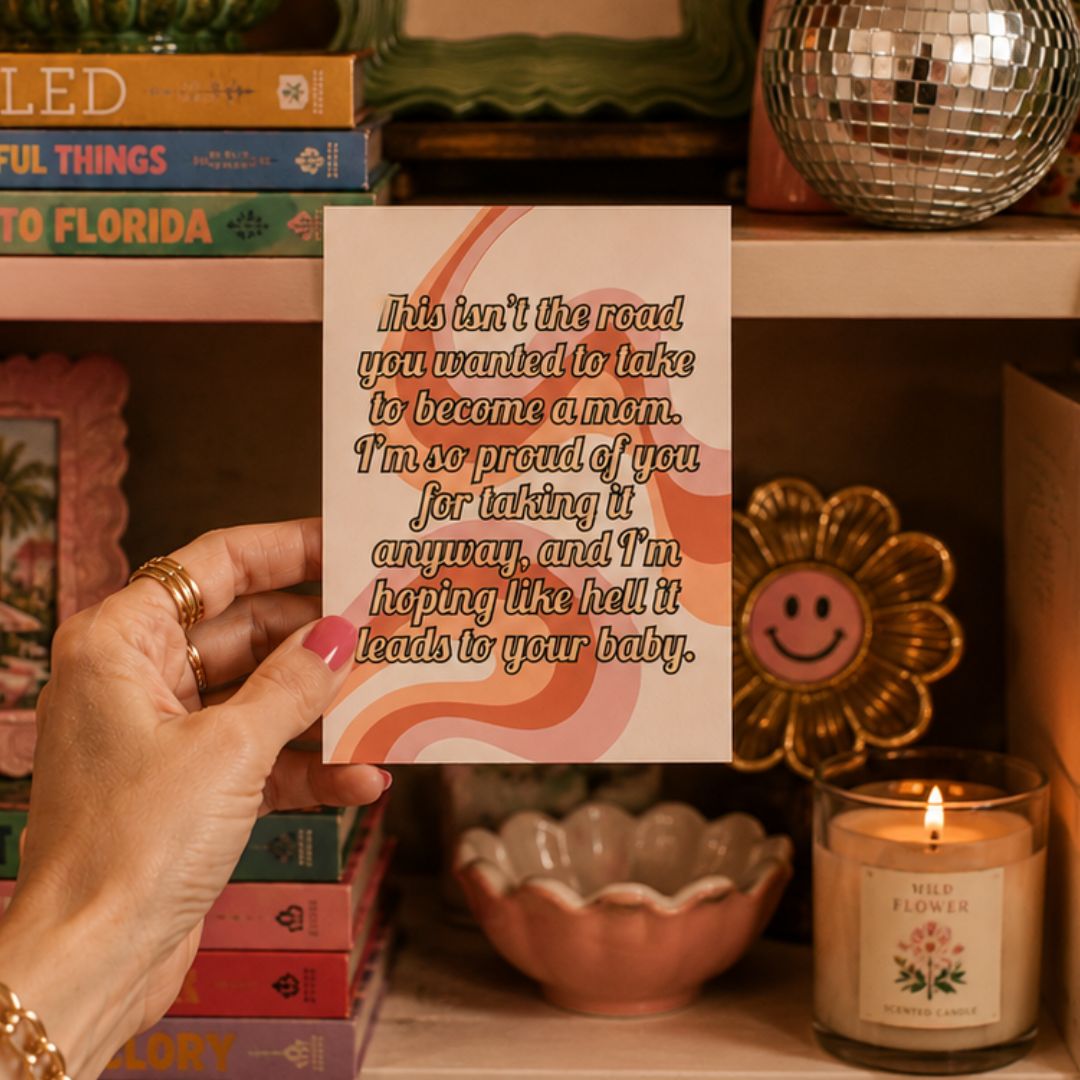 LED
FUL THINGS
TO FLORIDA
This isn't the road
you wanted to take
to become a mom.
I'm so proud of you
for taking it
anyway, and I'm
hoping like hell it
leads to your baby.
WILD
FLOWER
SCENTED CANDLE
LORY